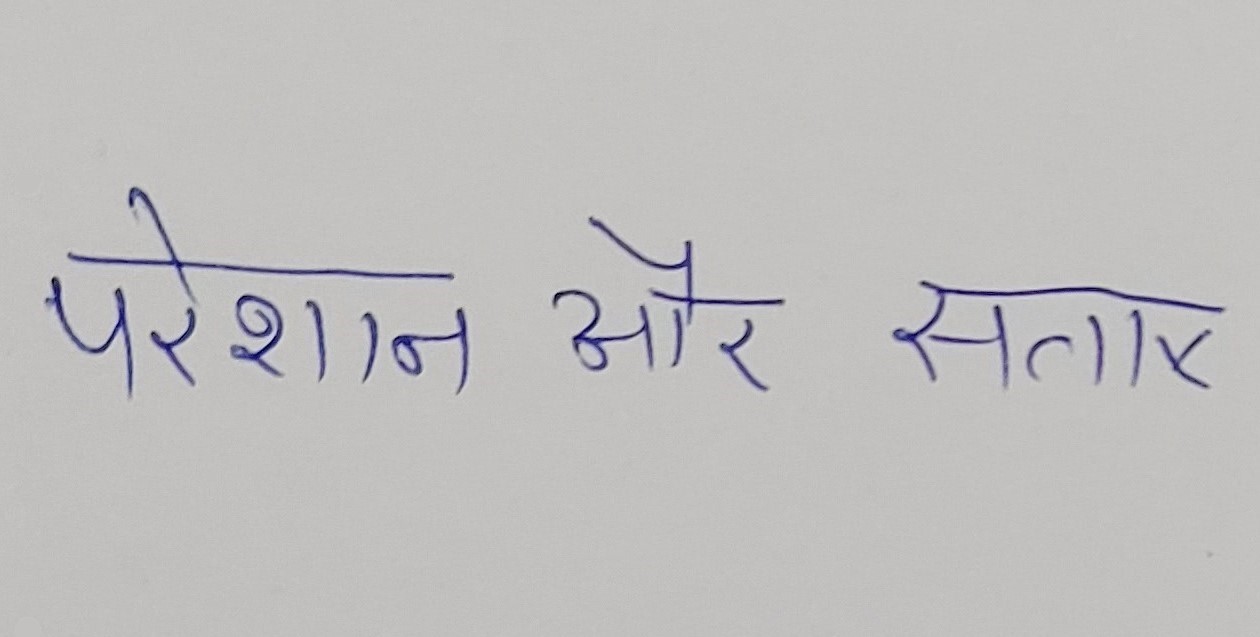 परेशान और सतार